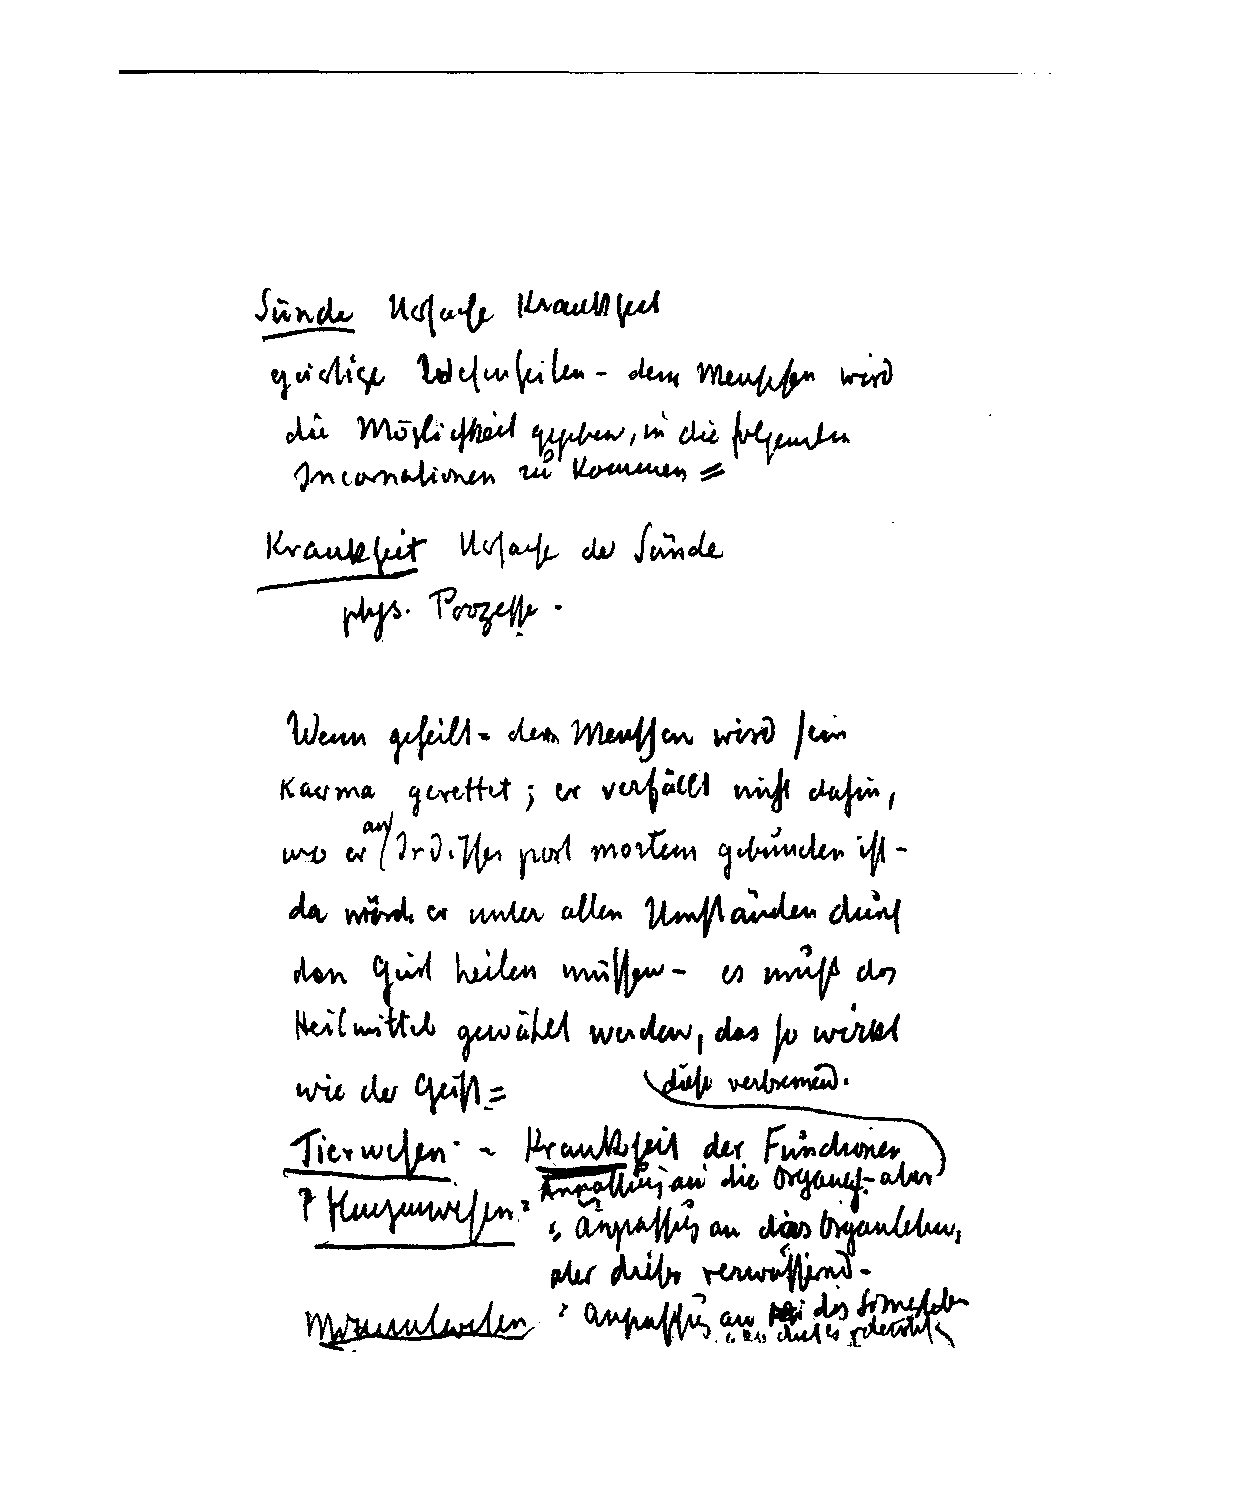 Sünde Ursache Krankheit
geistige Wesenheiten - dem Menschen wird
die Möglichkeit gegeben, in die folgenden
Incarnationen zu kommen =
Krankheit Ursache der Sünde
phys. Prozesse.
Wenn geheilt - dem Menschen wird sein
Karma gerettet; er verfällt nicht dahin,
wo er an Irdisches post mortem gebunden ist -
da würde er unter allen Umständen durch
den Geist heilen müssen - es muß das
Heilmittel gewählt werden, das so wirkt
wie der Geist =
diese verbrennend.
Tierwesen - Krankheit der Functionen
Anpassung an die Organe - aber
Pflanzenwesen: Anpassung an das Organleben,
aber dieses verwässernd -
Mineralwesen: Anpassung an das